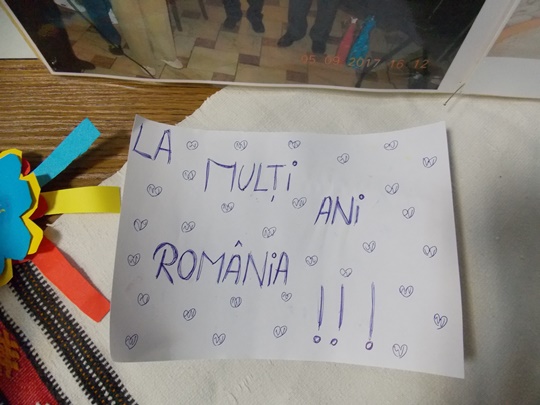 05.09.2017 16:12
LA
MULȚI
ANI
ROMÂNIA
!!!